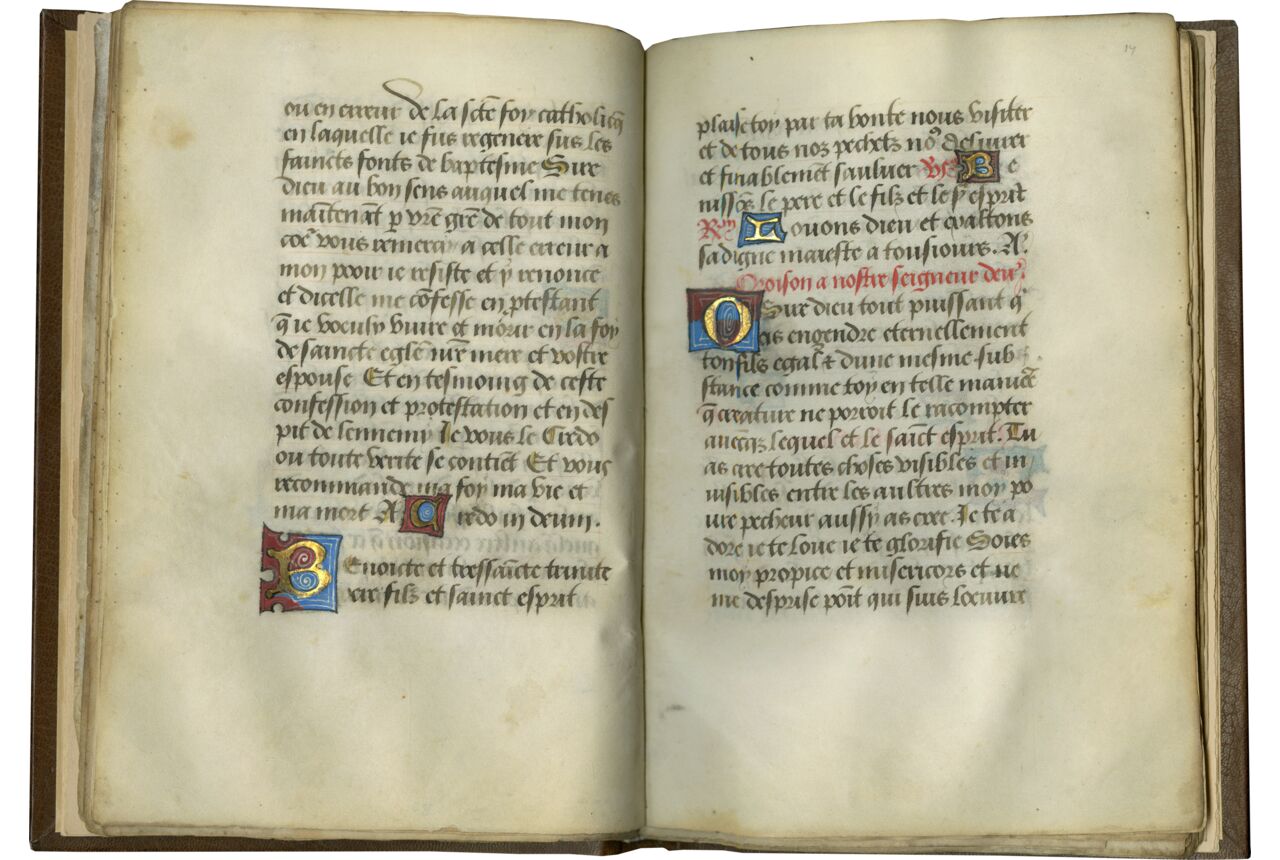 ou en erreur de la scte foy catholicq
en laquelle ie fus regenere sus les
saincts fonts de baptesme Sire
dieu au bon sens auquel me tenes
maitenāt p vr̄e gre de tout mon
coe᷑ vous remercy a celle erreur a
mon pooir ie resiste et y renonce
et dicelle me cōfesse en p̄testant
q̄ ie voeuly viure et morir en la foy
de saincte eglē nr̄e mere et vostre
espouse Et en tesmoing de ceste
confession et protestation et en des
pit de lennemy Ie vous le Credo
ou toute verite se contiēt Et vous
recommande ma foy ma vie et
ma mort A. Credo in deum.
Benoicte et tressaīcte trinite
pere filz et sainct esprit
14
plaise toy par ta bonte nous visiter
et de tous noz pechetz no᷑ deliurer
et finablemēt saulver Vs Be
nissōs le pere et le filz et le sᵗ esprit
Rn̄ Louons dieu et exaltons
sa digne maieste a tousiours. A.
Oroison a nostre seigneur dieu.
O Sire dieu tout puissant q̇
as engendre eternellement
ton fils egal & dune mesme sub
stance comme toy en telle maniere
q̄ creature ne porroit le racompter
auecqz lequel et le saīct esprit. Tu
as cree toutes choses visibles et in
uisibles entre les aultres moy po
ure pecheur aussy as cree. Ie te a
dore ie te loue ie te glorifie Soies
moy propice et misericors et ne
me desprise poīt qui suis loeuure